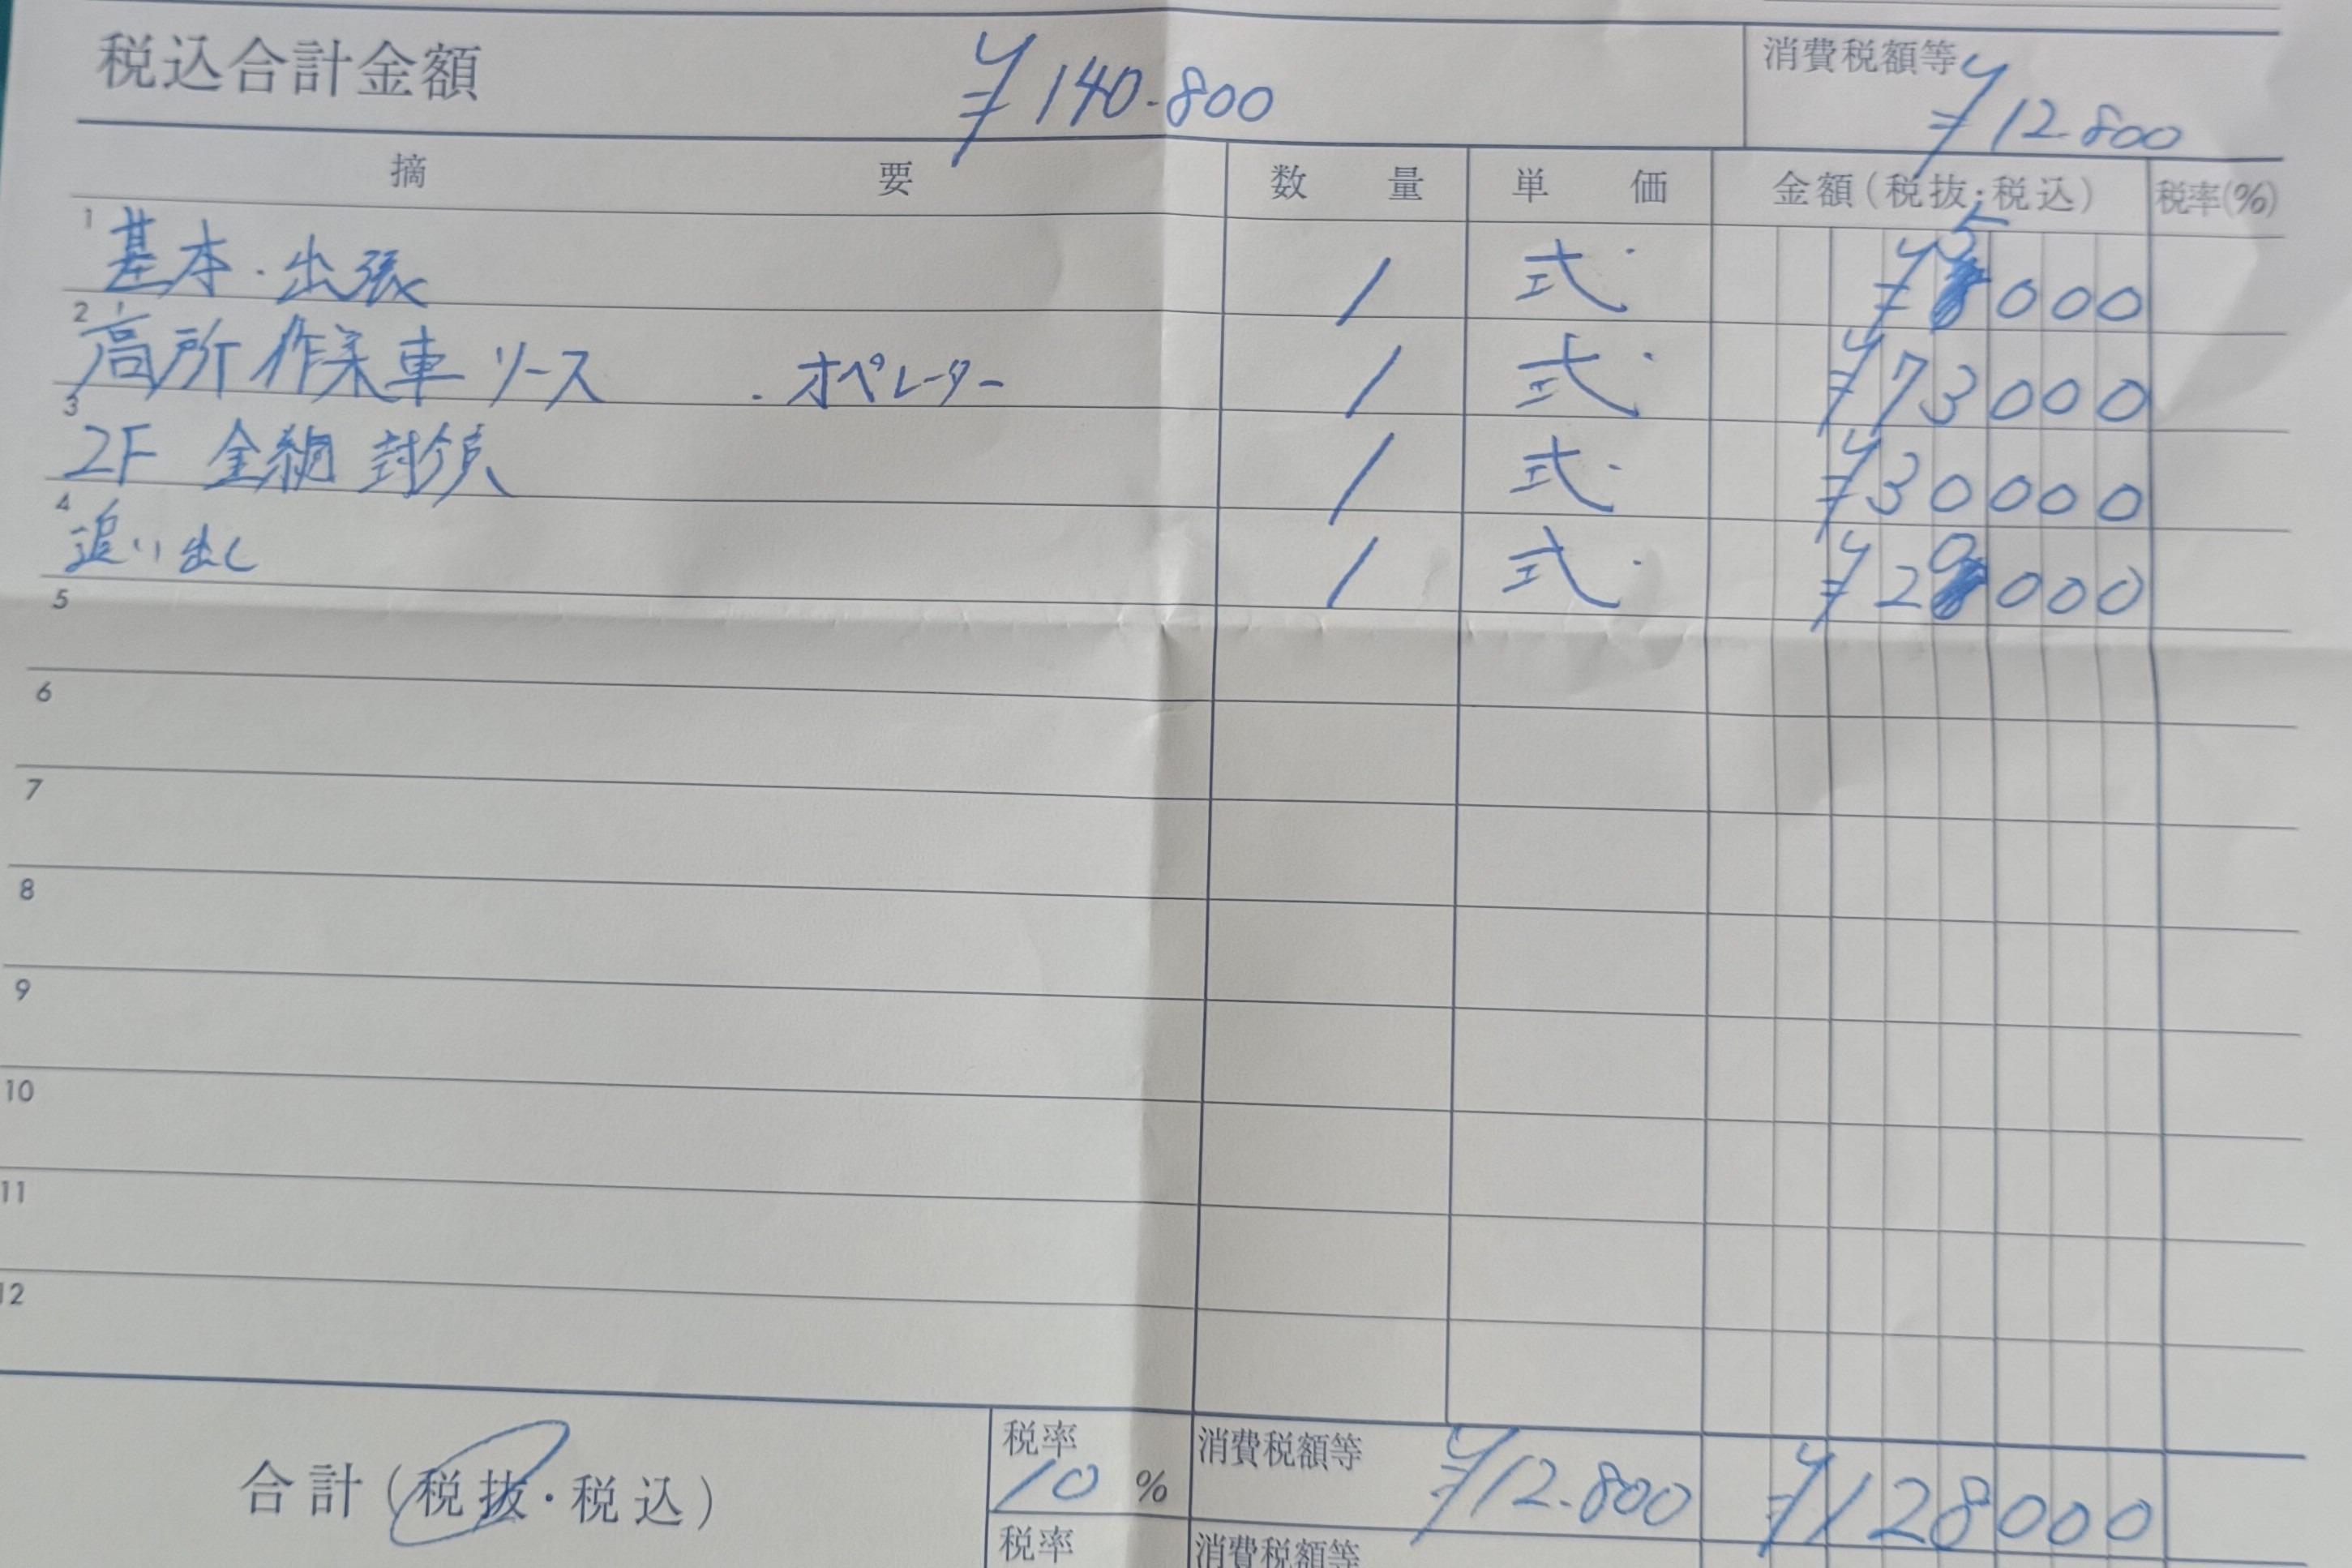 税込合計金額 ¥140.800 消費税額等 ¥12.800
摘 要 数 量 単 価 金額(税抜・税込) 税率(%)
1 基本・出張 1 式 ¥5000
2 高所作業車 リース ・オペレーター 1 式 ¥73000
3 2F 金網 封鎖 1 式 ¥30000
4 追い出し 1 式 ¥20000
5
6
7
8
9
10
11
12
合計(税抜・税込) 税率 10 % 消費税額等 ¥12.800 ¥128000
税率 消費税額等